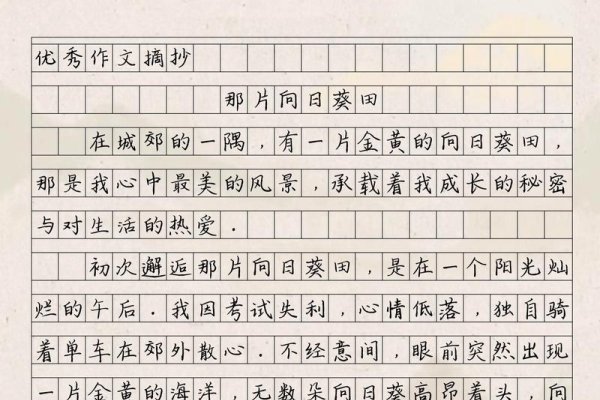 优秀作文摘抄
那片向日葵田
在城郊的一隅,有一片金黄的向日葵田,
那是我心中最美的风景,承载着我成长的秘密
与对生活的热爱.
初次邂逅那片向日葵田,是在一个阳光灿
烂的午后.我因考试失利,心情低落,独自骑
着单车在郊外散心.不经意间,眼前突然出现
一片金黄的海洋,无数朵向日葵高昂着头,向